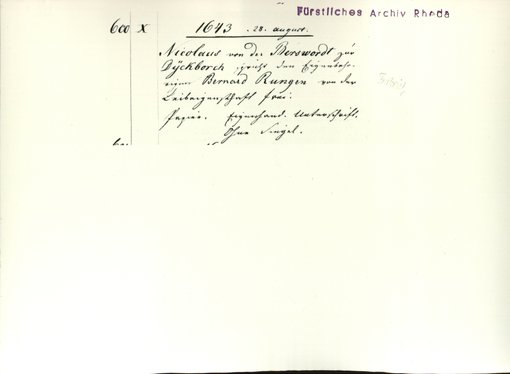 Fürstliches Archiv Rheda
600 X 1643 . 28. august.
Nicolaus von der Berswordt zür
Dÿckborch spricht den Eigenbehö-
rigen Bernard Rungen von der
Leibeigenschaft frei.
Papier. Eigenhänd. Unterschrift.
Ohne Siegel.